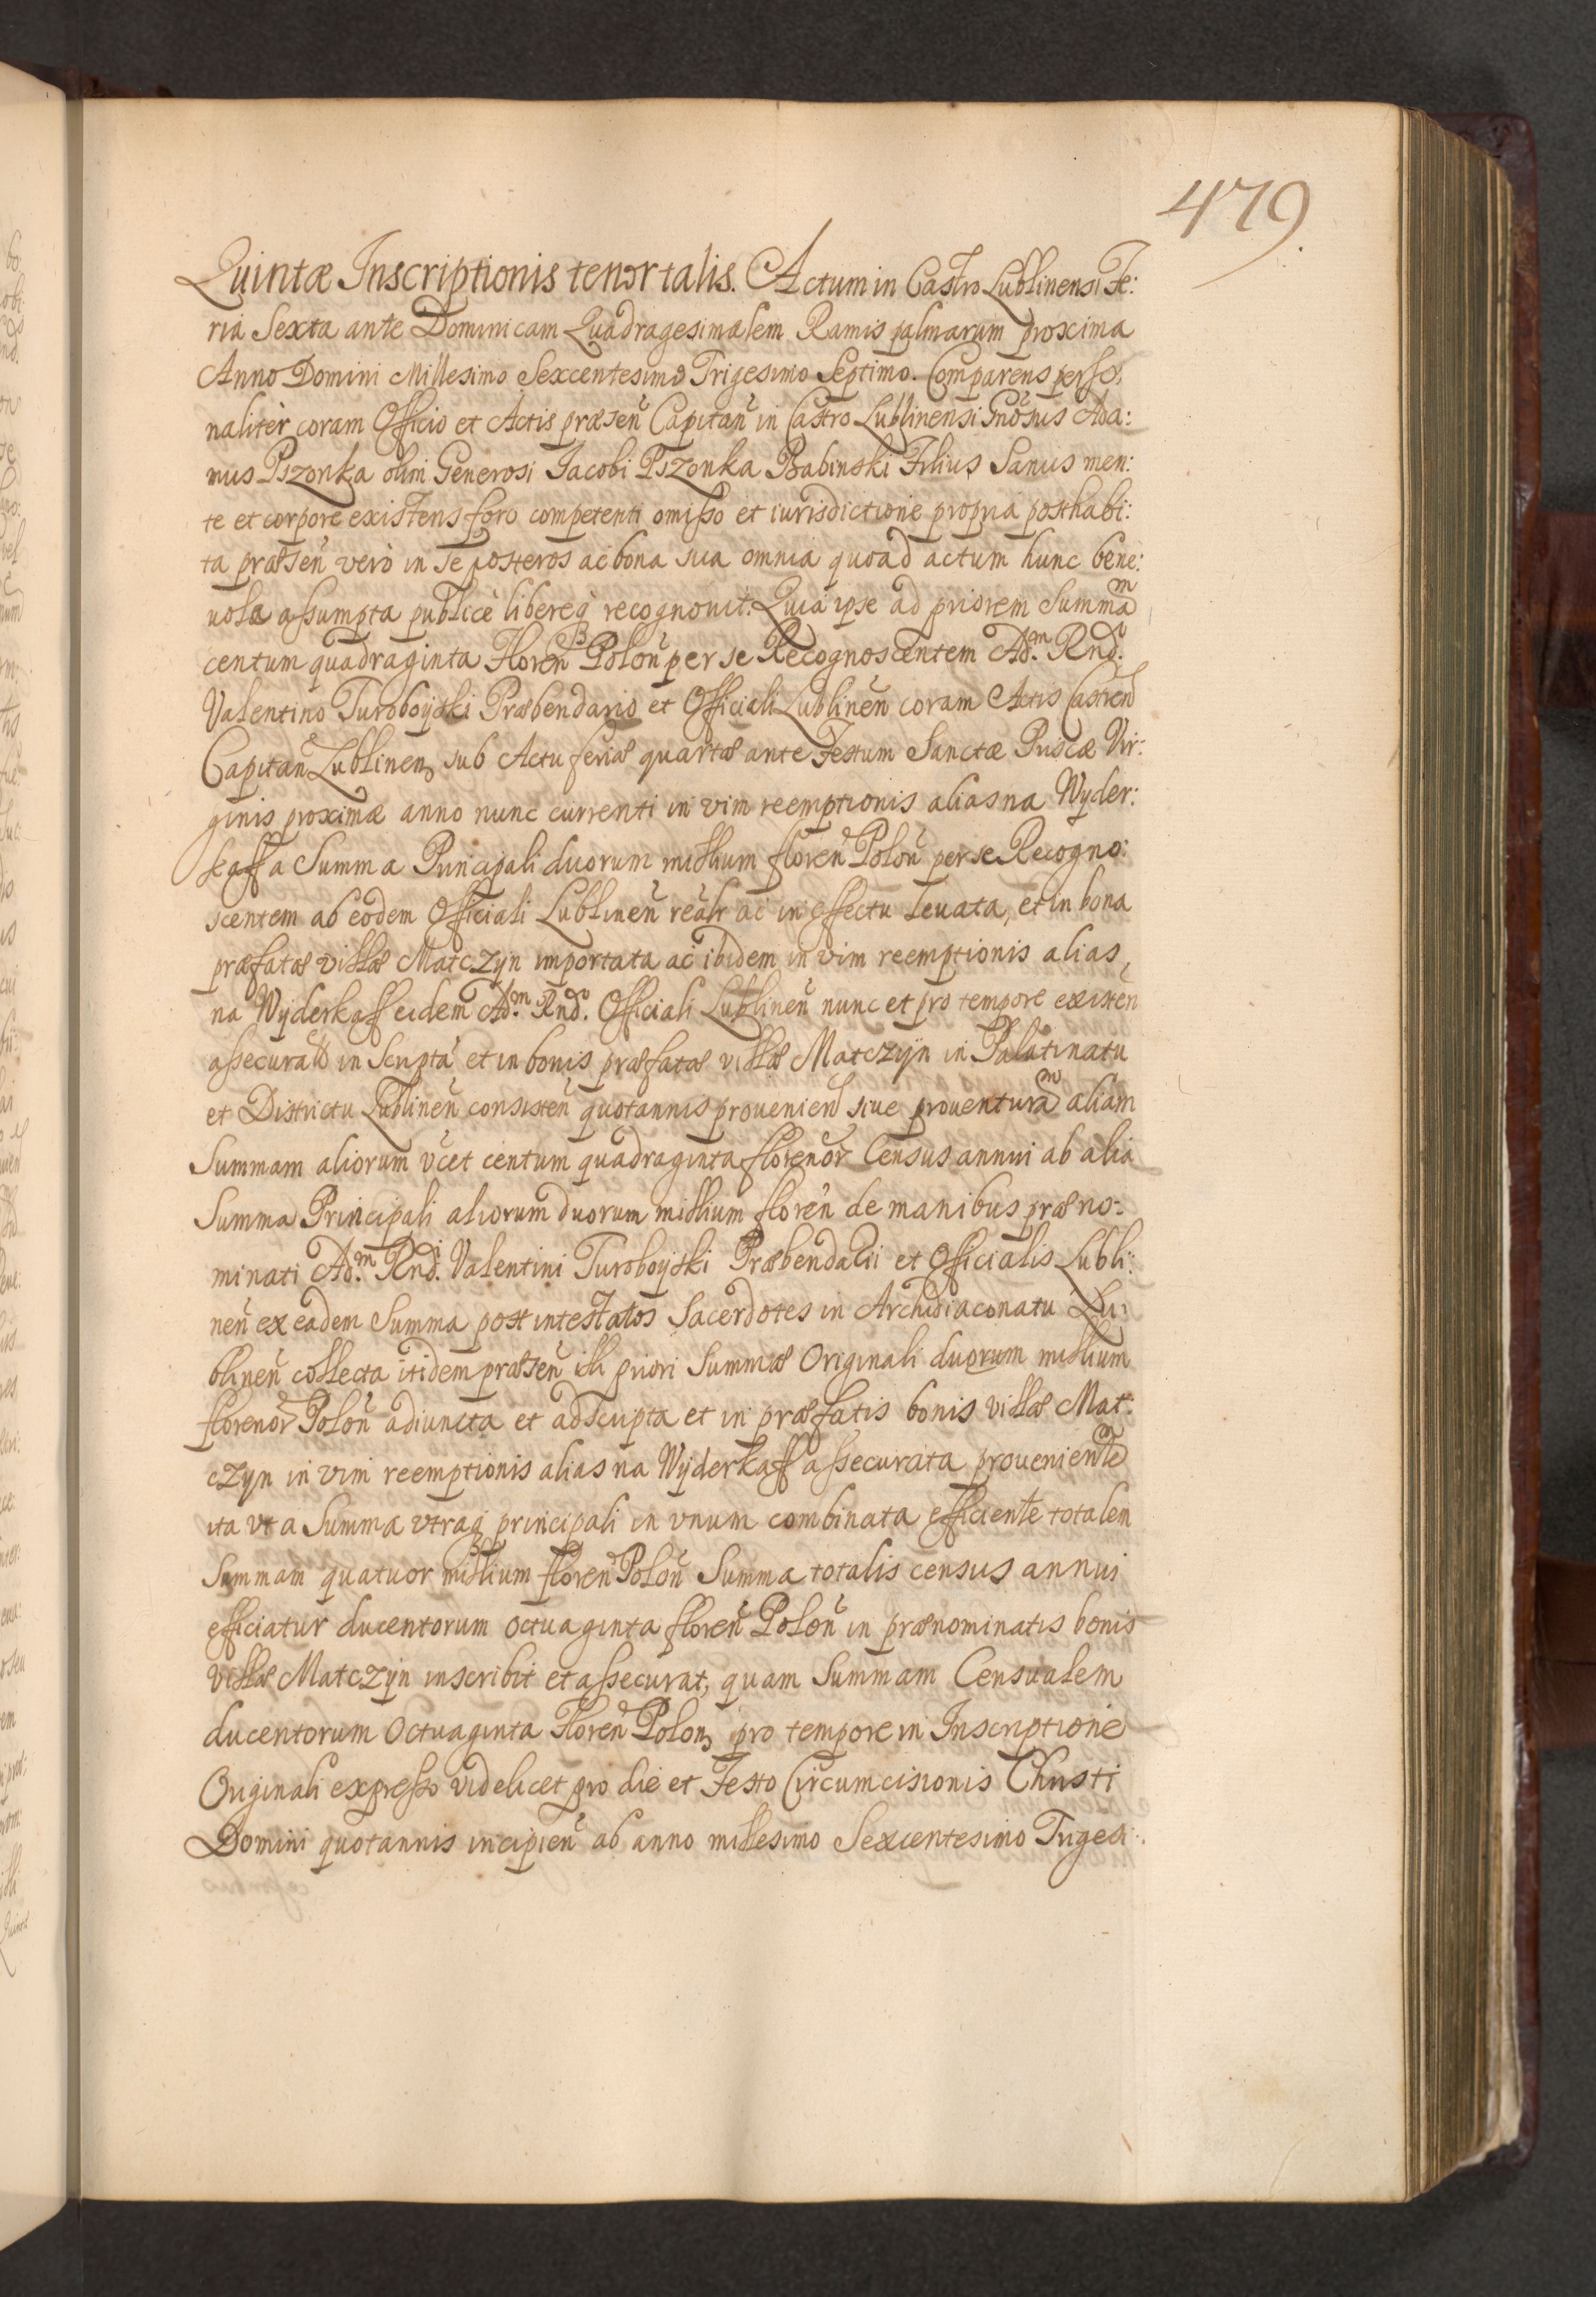 479.
Quintæ Inscriptionis tenor talis. Actum in Castro Lublinensi Fe:
ria Sexta ante Dominicam Quadragesimalem Ramis palmarum proxima
Anno Domini Millesimo Sexcentesimo Trigesimo Septimo. Comparens perso:
naliter coram Officio et Actis præsen̄ Capitan̄ in Castro Lublinensi Gnõsus Ada:
mus Pszonka olim Generosi Jacobi Pszonka Babinski Filius Sanus men:
te et corpore existens foro competenti omisso et iurisdictione propria posthabi:
ta præsen̄ verò in se posteros ac bona sua omnia quoad actum hunc bene:
uole assumpta publicè libereq recognouit. Quia ipse ad priorem Summam
centum quadraginta Floren̄ Polon̄ per se Recognoscentem Ad.m Rnd.o
Valentino Turoboyski Præbendario et Officiali Lublinen̄ coram Actis Castren̄
Capitan̄ Lublinen, sub Actu feriæ quartæ ante Festum Sanctæ Priscæ Vir:
ginis proximæ anno nunc currenti in vim reemptionis alias na Wyder:
kaff a Summa Principali duorum millium floren̄ Polon̄ per se Recogno:
scentem ab eodem Officiali Lublinen̄ realr ac in effectu leuata, et in bona
præfatæ villæ Matczyn importata ac ibidem in vim reemptionis alias,
na Wyderkaff eidem Ad.m Rnd.o Officiali Lublinen̄ nunc et pro tempore existen̄
assecurata inscripta et in bonis præfatæ villæ Matczyn in Palatinatu
et Districtu Lublinen̄ consisten̄ quotannis prouenien̄ siue prouenturam aliam
Summam aliorum vcet centum quadraginta florenor̄ Census annui ab alia
Summa Principali aliorum duorum millium floren̄ de manibus præno:
minati Ad.m Rnd.i Valentini Turoboyski Præbendarii et Officialis Lubli:
nen̄ ex eadem Summa post intestatos Sacerdotes in Archidiaconatu Lu:
blinen̄ collecta itidem præsen̄ illi priori Summæ Originali duorum millium
florenor̄ Polon̄ adiuncta et adscripta et in præfatis bonis villæ Mat:
czyn in vim reemptionis alias na Wyderkaff assecurata proueniente
ita vt a Summa vtraq principali in vnum combinata efficiente totalem
Summam quatuor millium floren̄ Polon̄ Summa totalis census annui
efficiatur ducentorum octuaginta floren̄ Polon̄ in prænominatis bonis
villæ Matczyn inscribit et assecurat, quam Summam Censualem
ducentorum Octuaginta Floren̄ Polon, pro tempore in Inscriptione
Originali expresso videlicet pro die et Festo Circumcisionis Christi
Domini quotannis incipien̄ ab anno millesimo Sexcentesimo Trigesi: